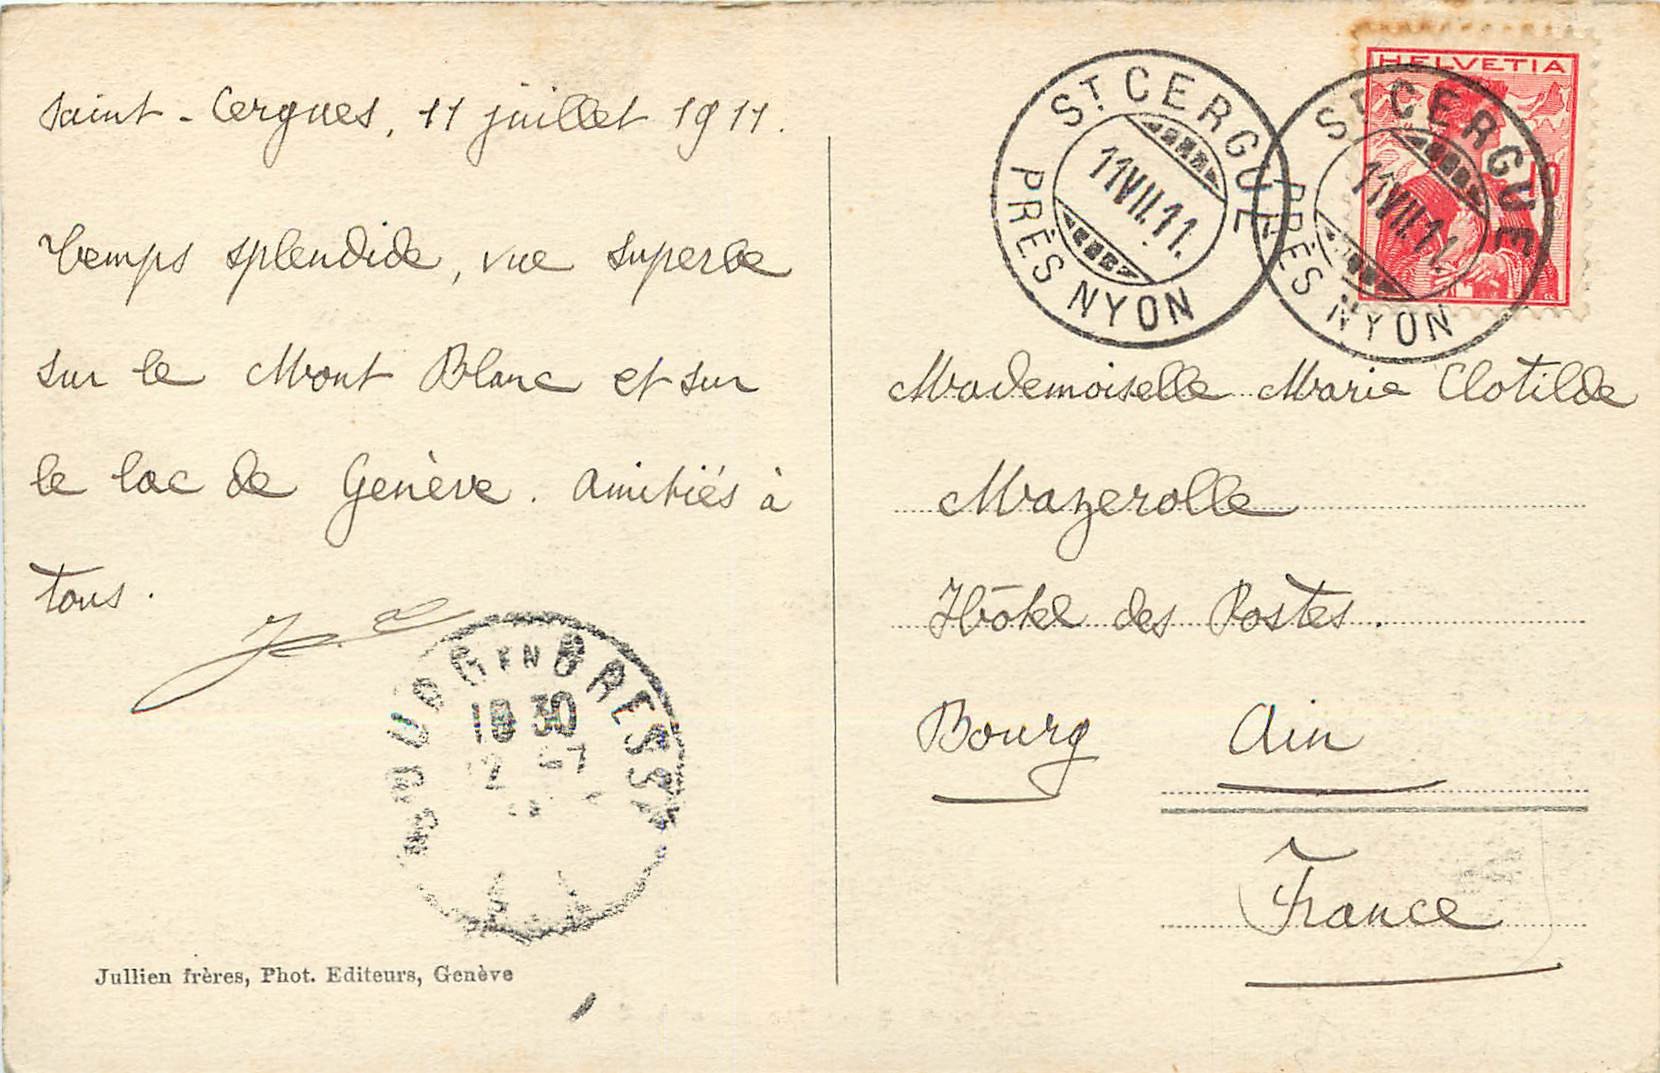 Saint-Cergues, 11 juillet 1911.
Temps splendide, vue superbe
sur le Mont Blanc et sur
le lac de Genève. Amitiés à
tous.
Jullien frères, Phot. Editeurs, Genève
BOURG EN BRESSE
18 30
HELVETIA
ST CERGUE
11 VII.11.
PRÈS NYON
ST CERGUE
11 VII.11.
PRÈS NYON
Mademoiselle Marie Clotilde
Mazerolle
Hôtel des Postes.
Bourg Ain
France